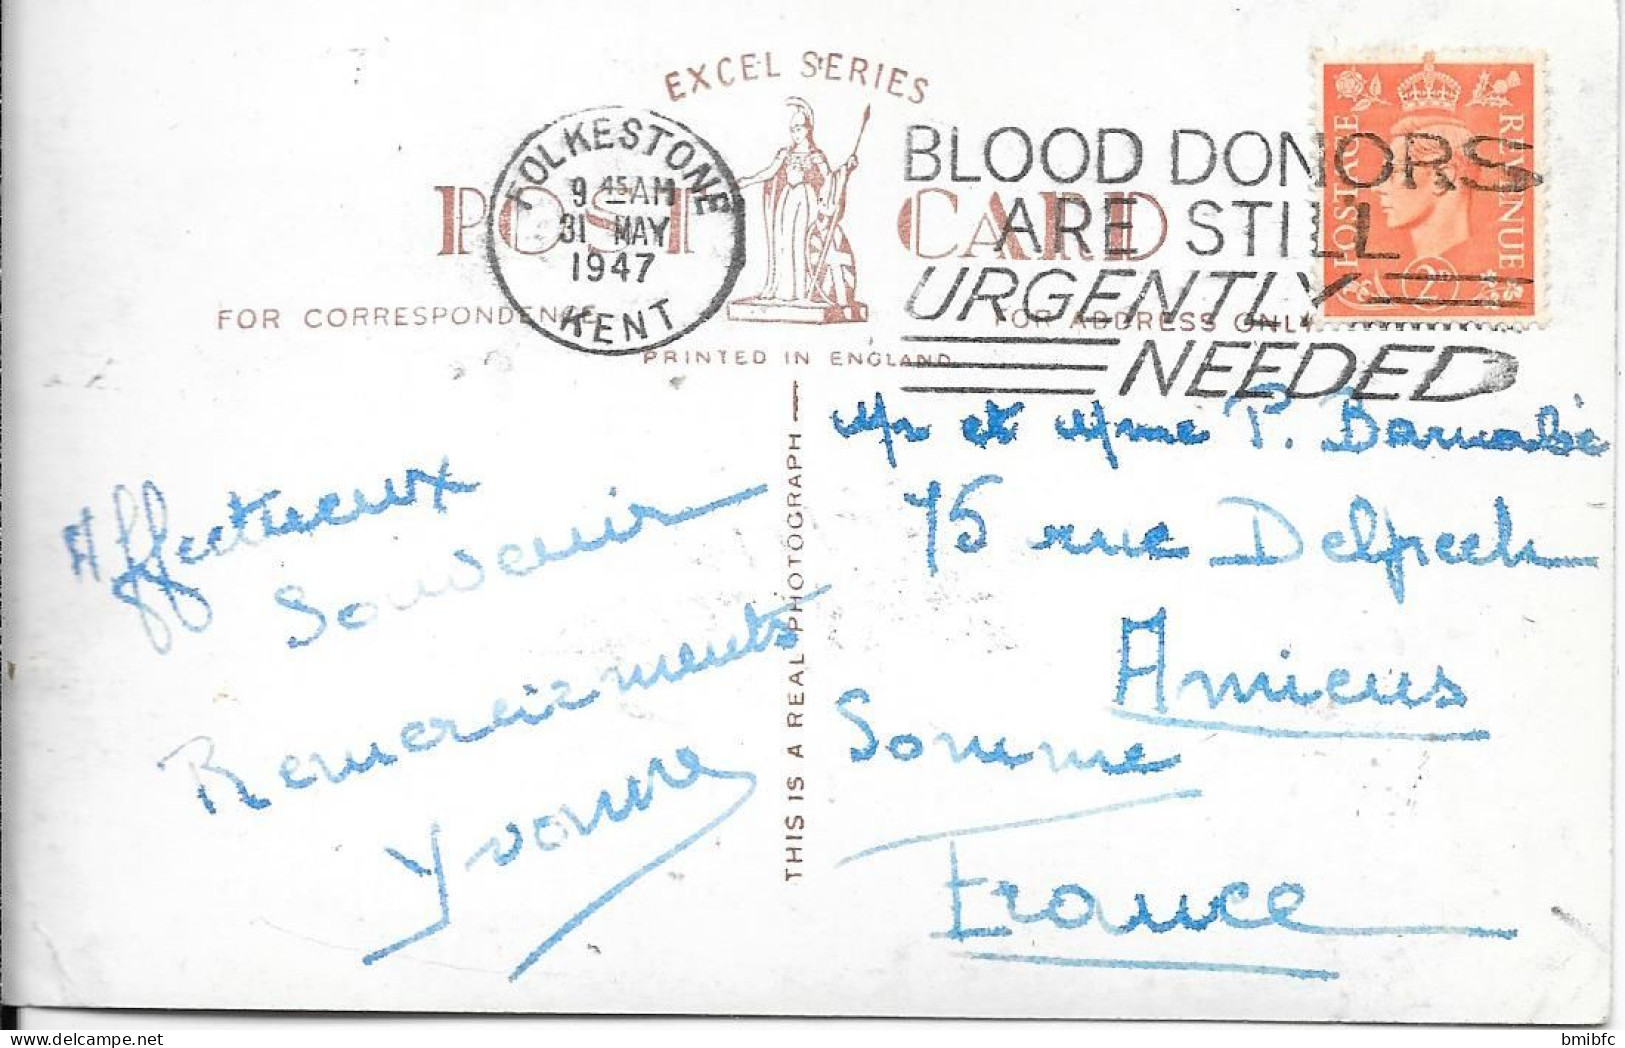 EXCEL SERIES
POST CARD
FOLKESTONE
9 45 AM
31 MAY
1947
KENT
BLOOD DONORS
ARE STILL
URGENTLY
NEEDED
POSTAGE REVENUE
2D
FOR CORRESPONDENCE
FOR ADDRESS ONLY
PRINTED IN ENGLAND
THIS IS A REAL PHOTOGRAPH
Affectueux
Souvenir
Remerciements
Yvonne
Mr et Mme P. Barnabé
75 rue Delpech
Amiens
Somme
France
bmibfc